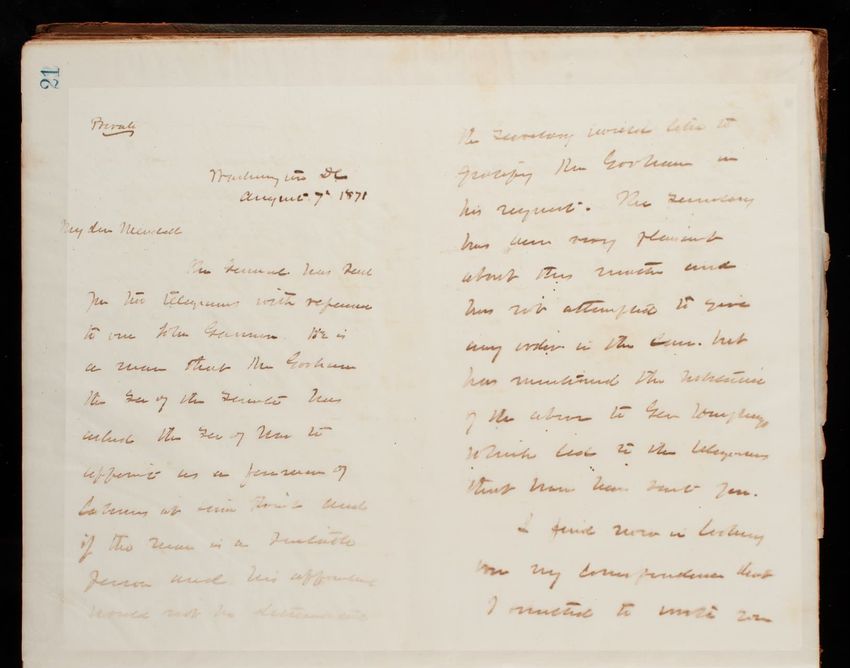 21
Private
Washington DC
August 7" 1871
My dear Mendell
The General has sent
you two telegrams with reference
to one John Gannon. He is
a man that Mr Gorham
the Sec of the Senate has
asked the Sec of War to
appoint as a foreman of
laborers at some Point and
if the man is a suitable
person and his appointment
would not be detrimental
the Secretary would like to
gratify Mr Gorham in
his request. The Secretary
has been very pleasant
about this matter and
has not attempted to give
any order in the case. but
has mentioned the substance
of the above to Gen Humphreys
which led to the telegrams
that have been sent you.
I find now in looking
over my correspondence that
I omitted to write you